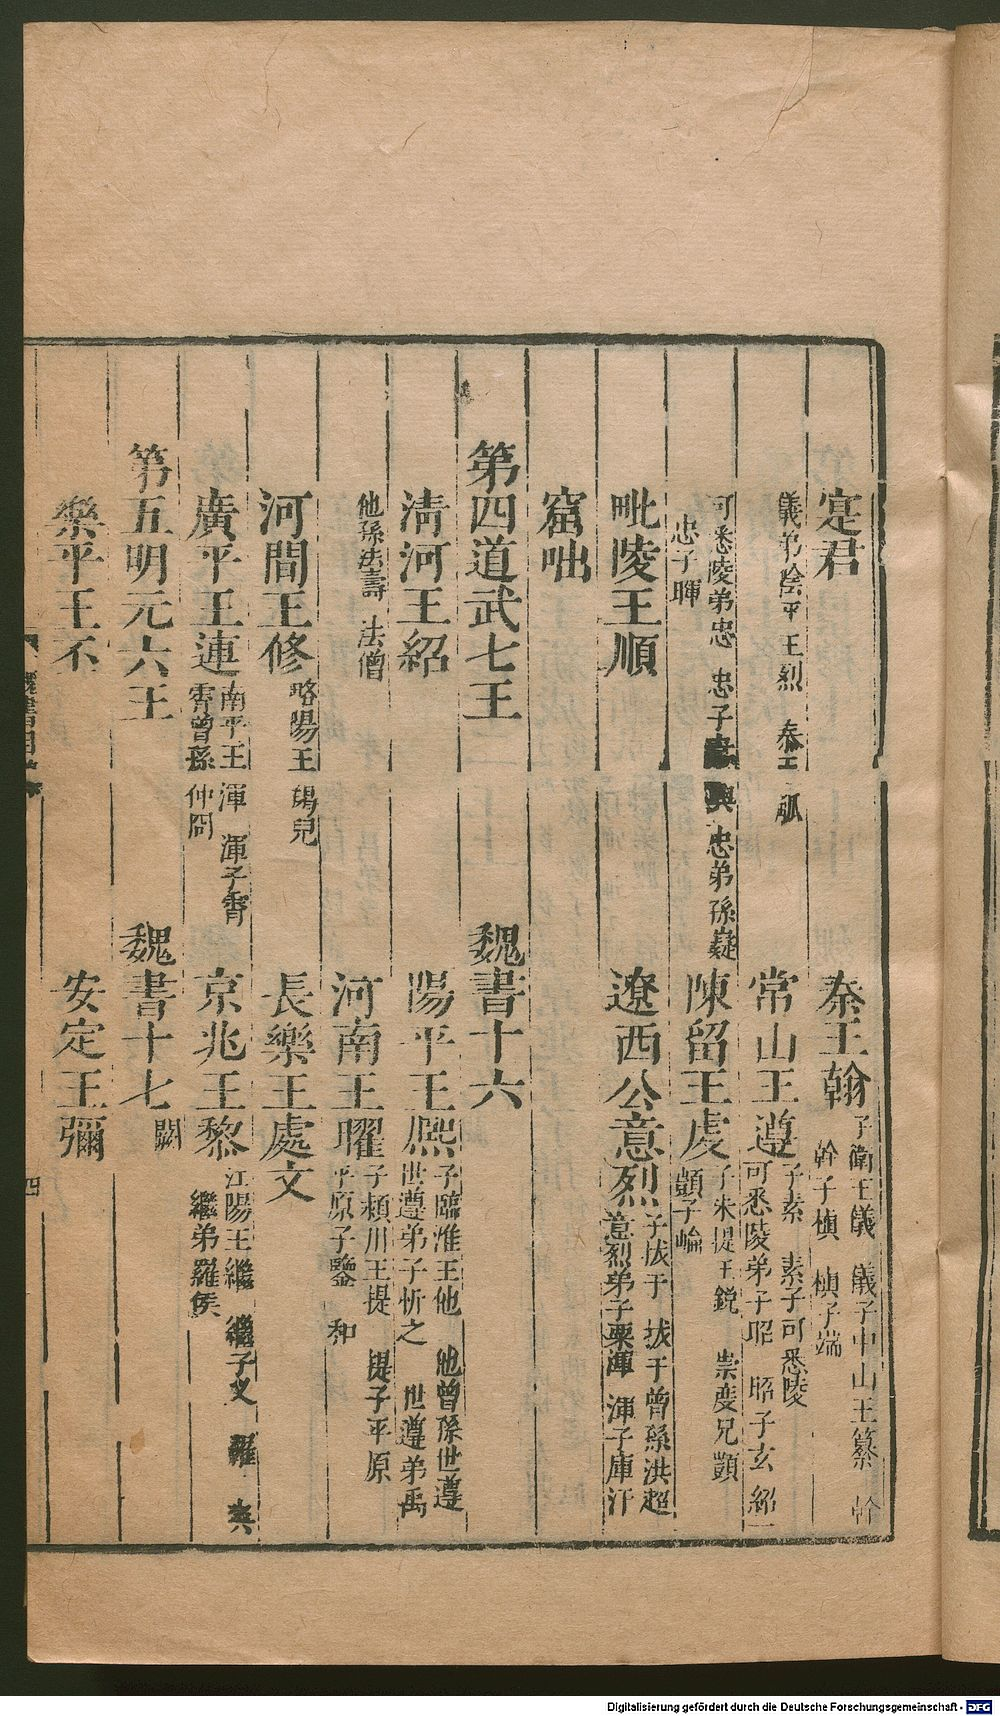 寔君 秦王翰 子衛王儀 儀子中山王纂 幹
幹子楨 楨子端
儀弟陰平王烈 秦王 觚 常山王遵 子素 素子可悉陵
可悉陵弟子昭 昭子玄 紹
可悉陵弟忠 忠子 興 忠弟孫嶷
忠子暉 陳留王虔 子朱提王 崇 虔兄顗
顗子崘
毗陵王順 遼西公意烈 子拔干 拔干曾孫洪超
意烈弟子栗渾 渾子庫汗
窟咄
第四道武七王 魏書十六
清河王紹 陽平王熈 子臨淮王他 他曾孫世遵
世遵弟子忻之 世遵弟禹
他孫法壽 法僧 河南王曜 子頴川王提 提子平原
平原子鑒 和
河間王修 略陽王羯兒 長樂王處文
廣平王連 南平王渾 渾子霄
霄曾孫仲冏 京兆王黎 江陽王繼 繼子乂 羅 夷
繼弟羅侯
第五明元六王 魏書十七 闕
樂平王丕 安定王彌
四